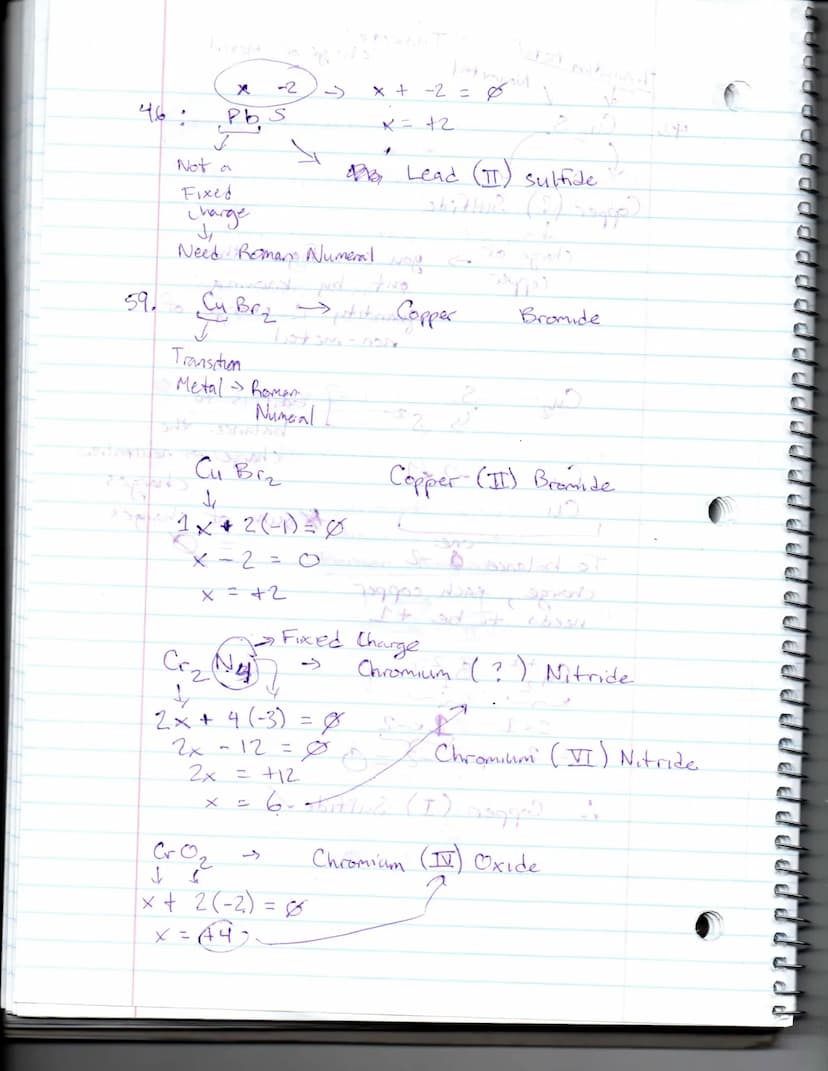 x -2 → x + -2 = ∅
46: PbS x = +2
Not a
Fixed
charge
Lead (II) sulfide
Need Roman Numeral
59. CuBr₂ → Copper Bromide
Transition
Metal → Roman
Numeral
CuBr₂ Copper (II) Bromide
1x + 2(-1) = ∅
x - 2 = 0
x = +2
→ Fixed Charge
Cr₂N₄ → Chromium (?) Nitride
2x + 4(-3) = ∅
2x - 12 = ∅
Chromium (VI) Nitride
2x = +12
x = 6
CrO₂ → Chromium (IV) Oxide
x + 2(-2) = ∅
x = +4